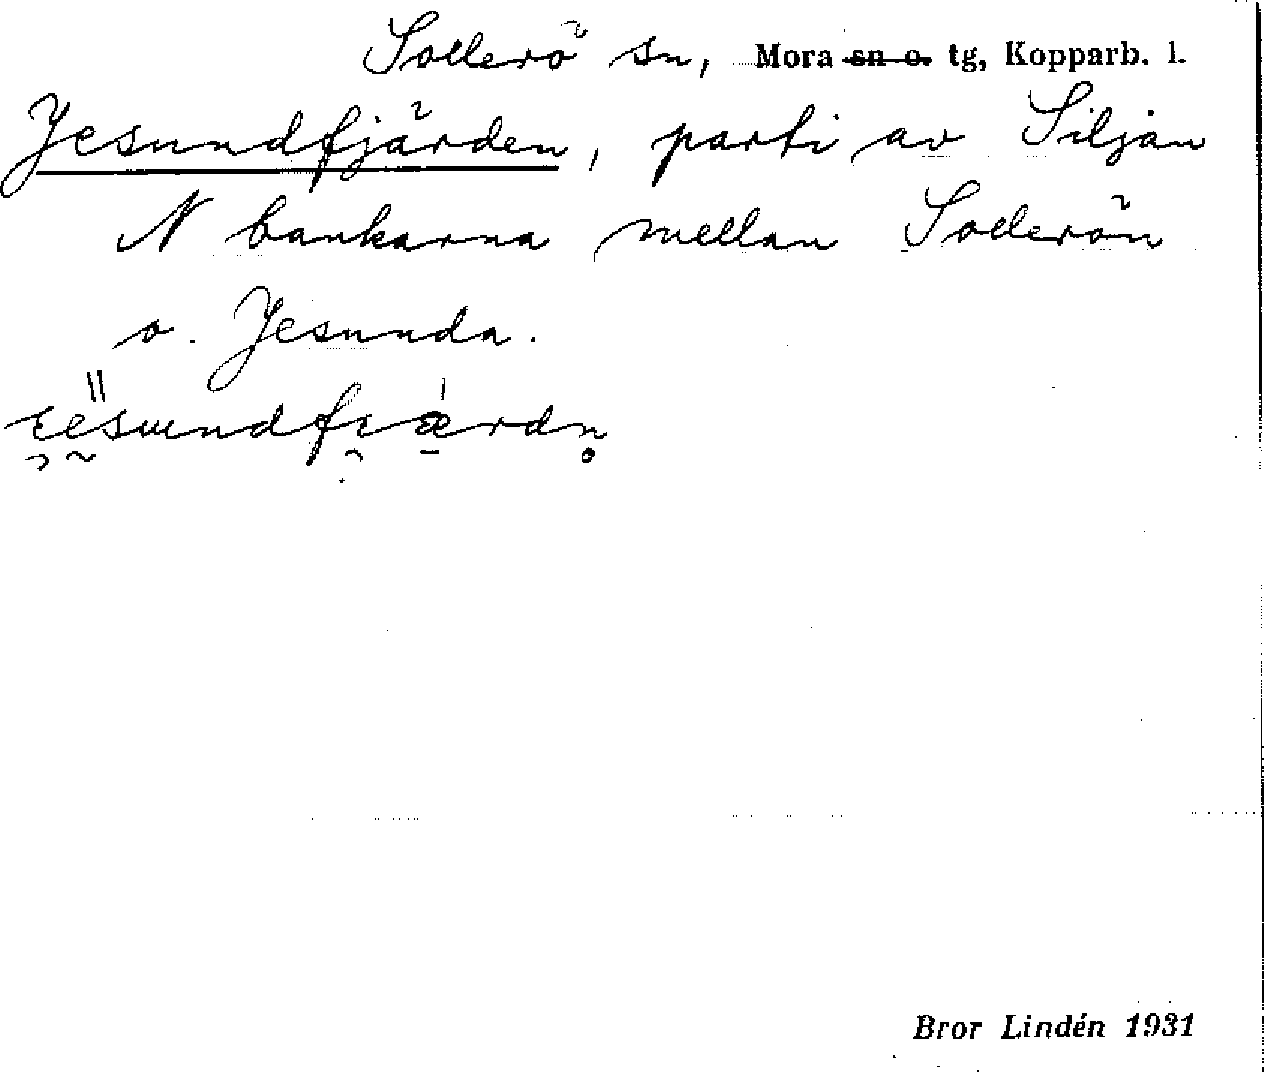 Sollerö sn, Mora sn o. tg, Kopparb. l.
Jesundfjärden, parti av Siljan
N bankarna mellan Sollerön
o. Jesunda.
Bror Lindén 1931